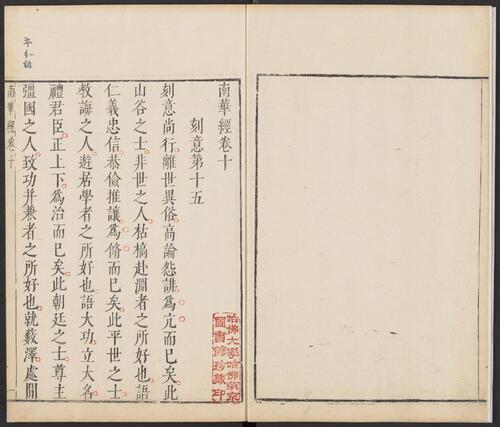 南華經卷十
刻意第十五
刻意尚行離世異俗高論怨誹爲亢而已矣此
山谷之士非世之人枯槁赴淵者之所好也語
仁義忠信恭儉推讓爲脩而已矣此平世之士
教誨之人遊居學者之所好也語大功立大名
禮君臣正上下爲治而已矣此朝廷之士尊主
彊國之人致功并兼者之所好也就藪澤處閒
南華經卷十
哈佛大學哈佛燕京
圖書館珍藏印